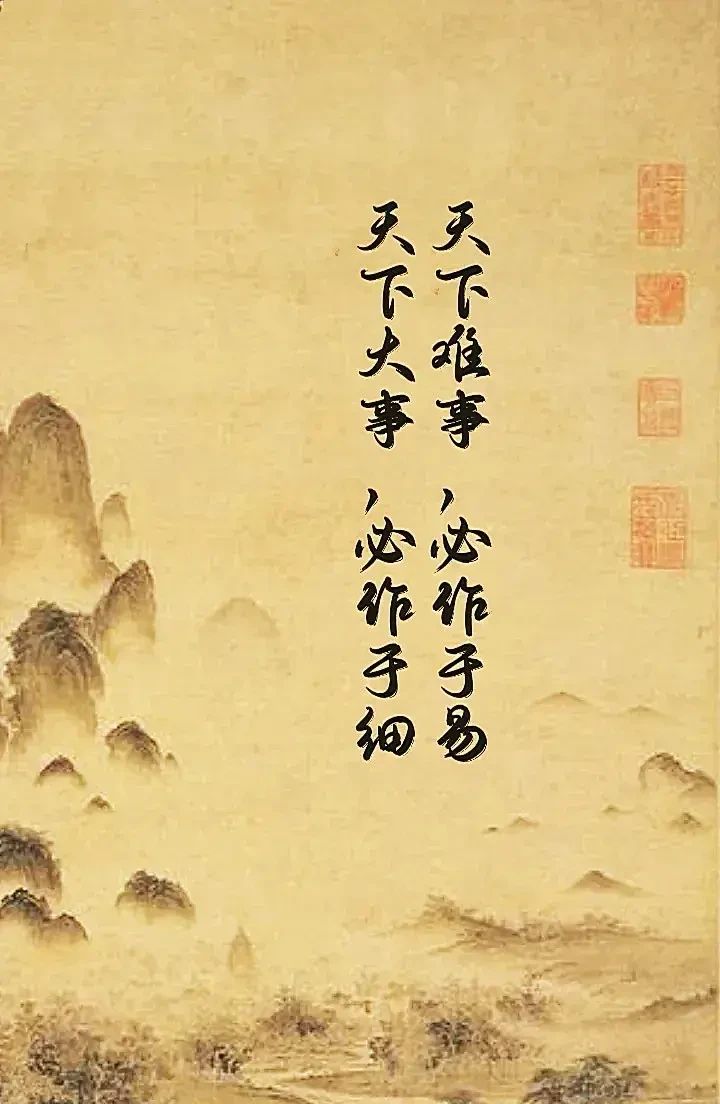 天下难事，必作于易
天下大事，必作于细